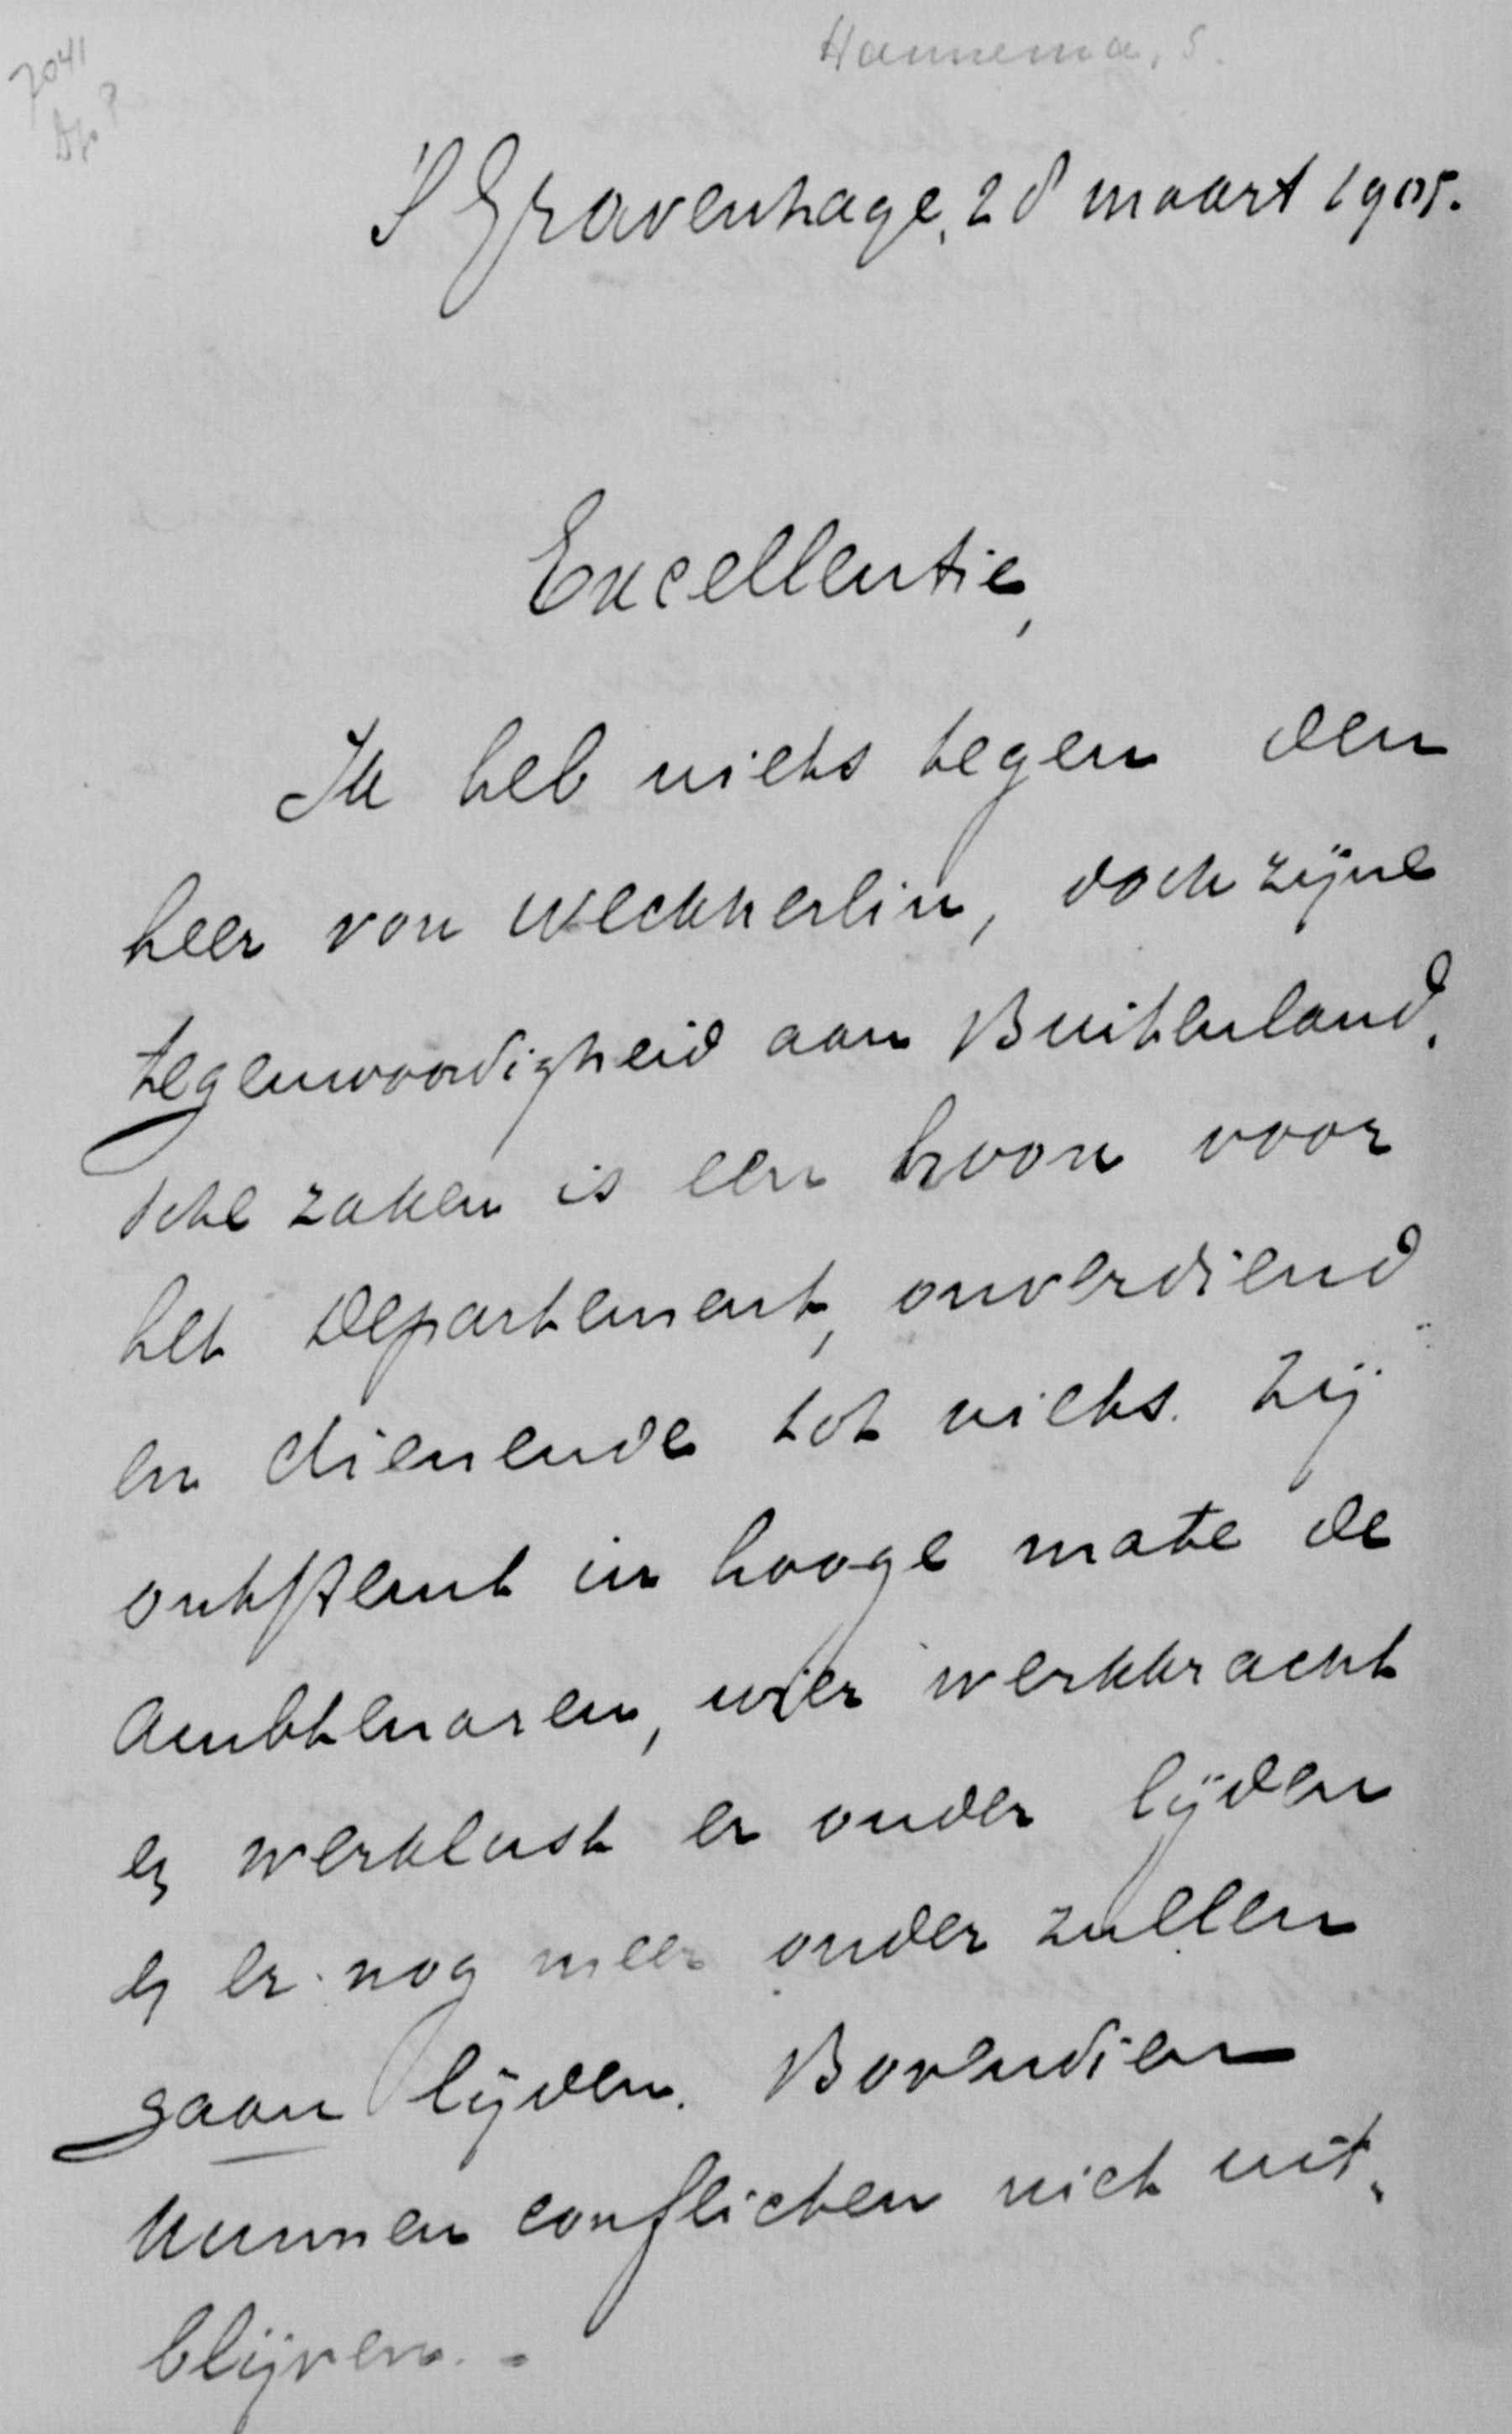 Hannema, S.
7041
's Gravenhage, 28 maart 1905.
Excellentie,
Ik heb niets tegen den
heer von Weckherlin, doch zijne
tegenwoordigheid aan Buitenland,
sche zaken is een hoon voor
het Departement, onverdiend
en dienende tot niets. Zij
ontstemt in hooge mate de
ambtenaren, wier werkkracht
en werklust er onder lijden
en er nog meer onder zullen
gaan lijden. Bovendien
kunnen conflicten niet uit,
blijven. -